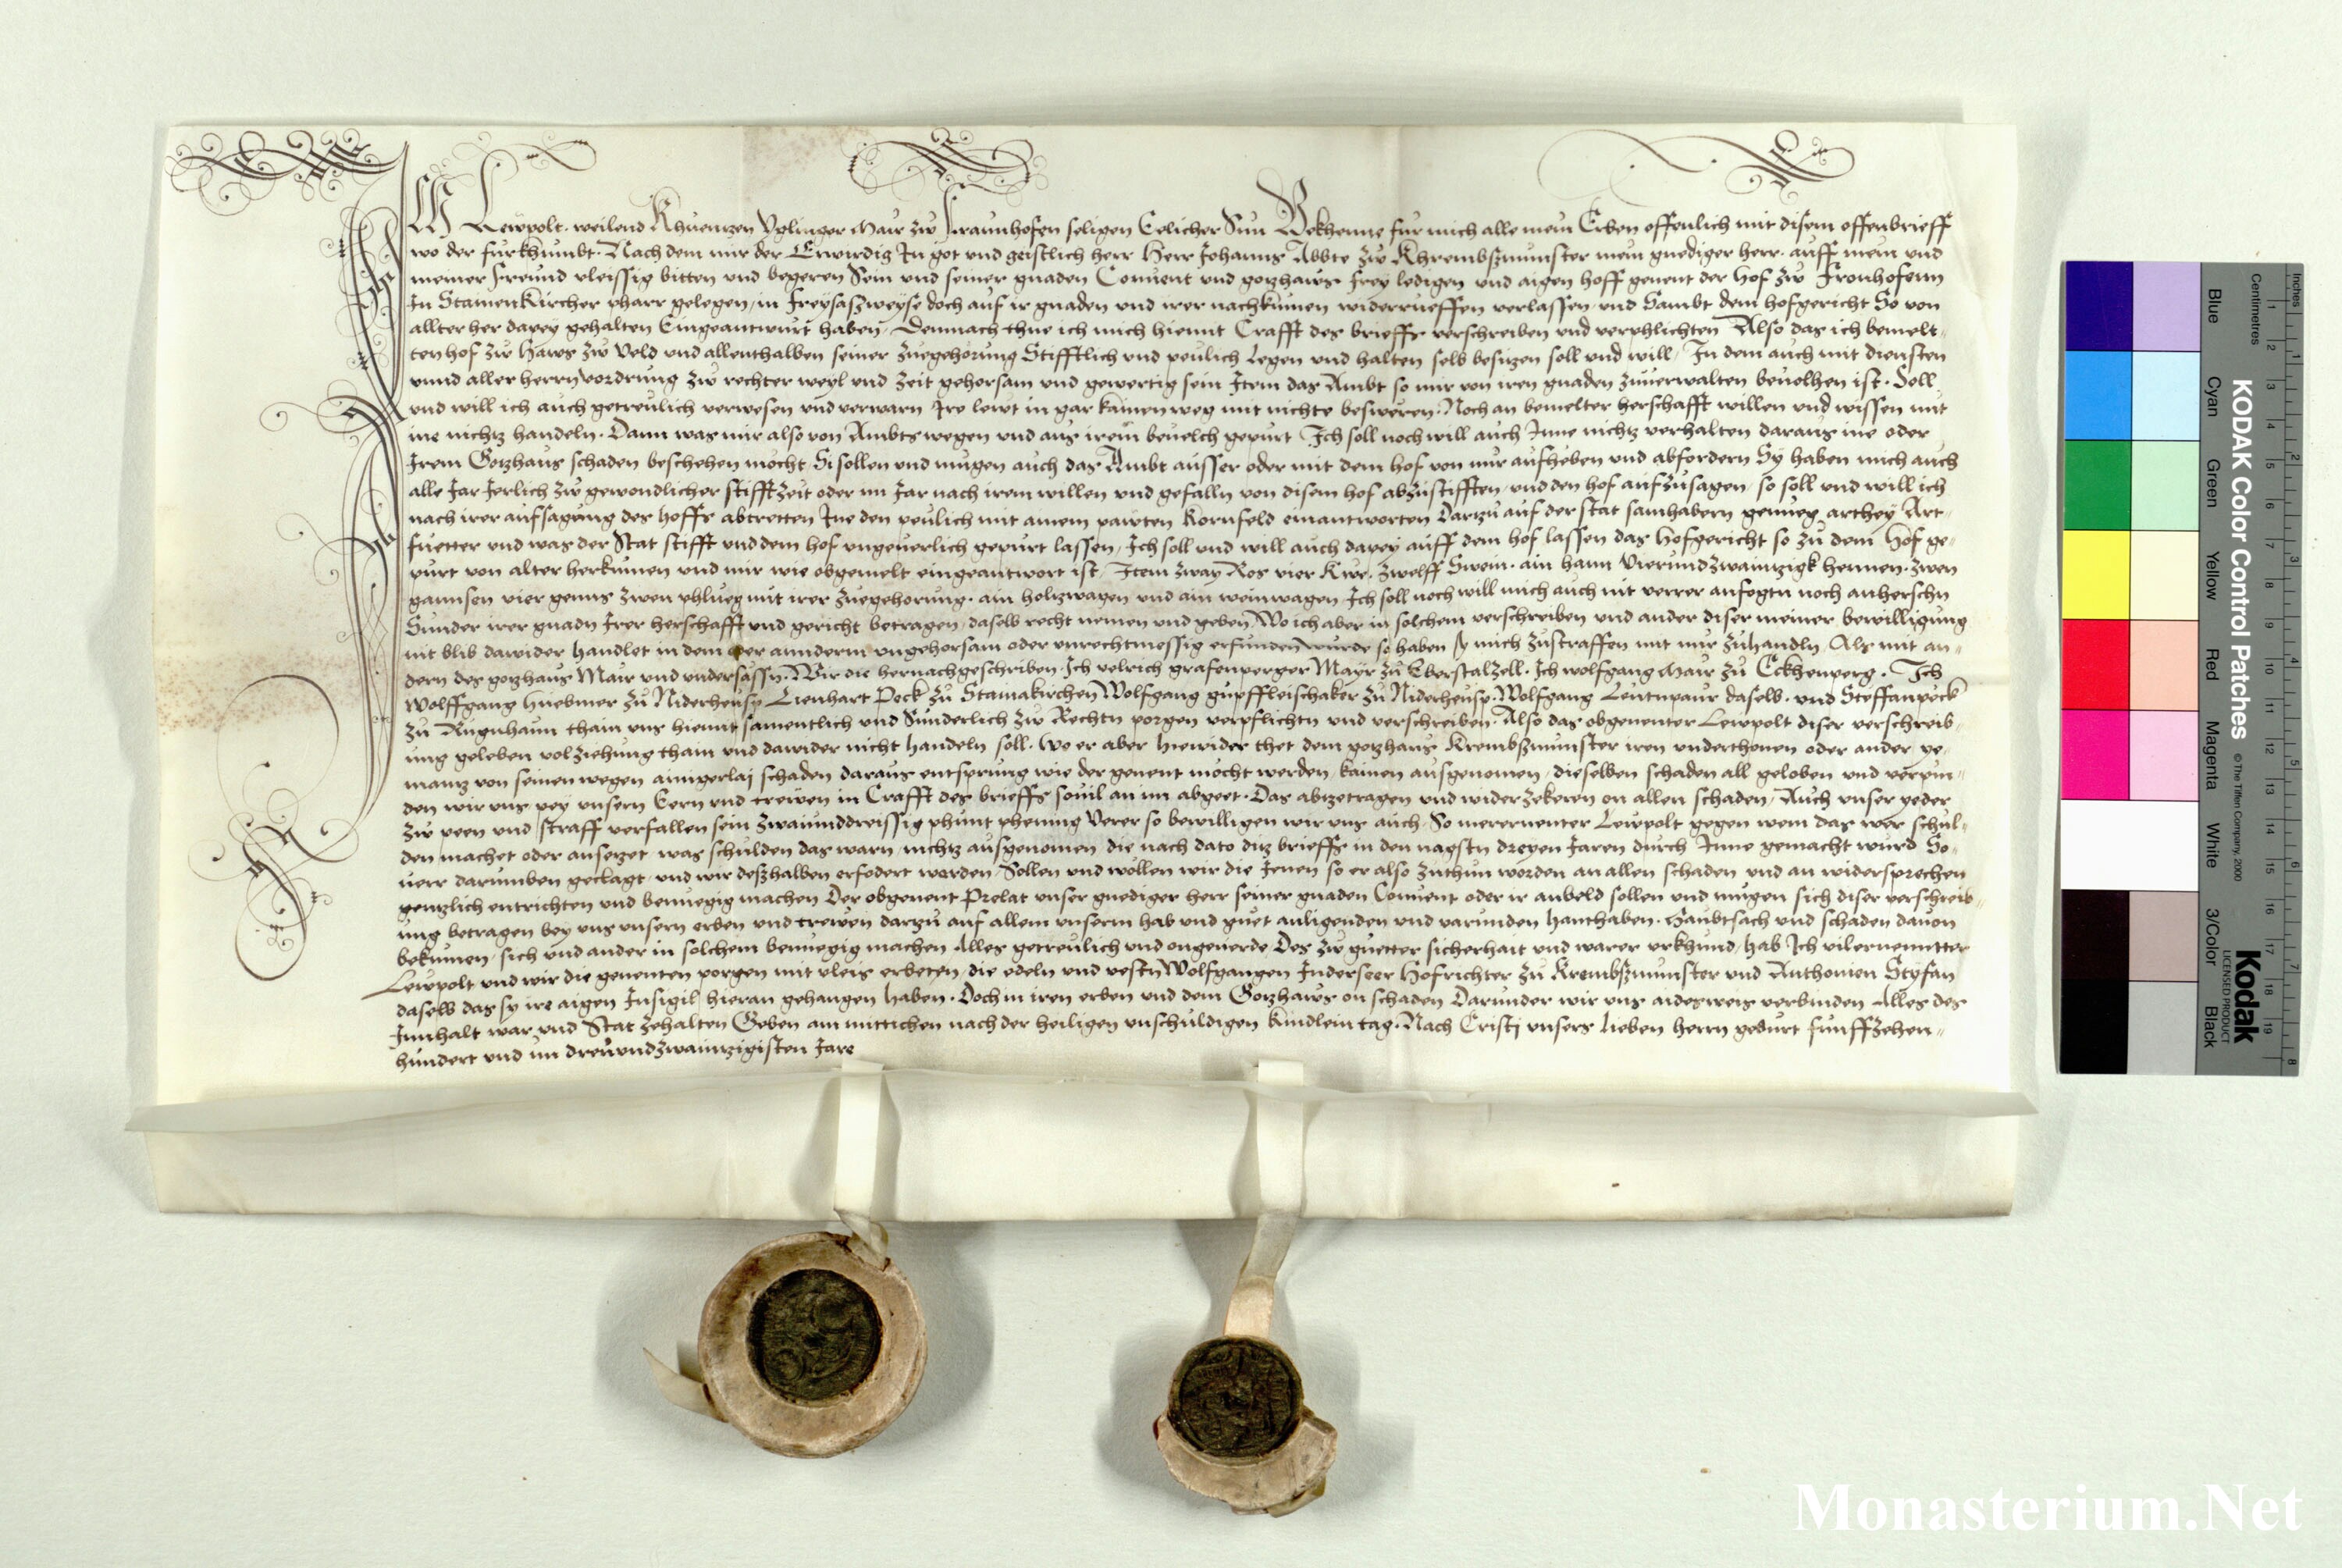 Ich Lewpolt weilend Khuentzen Yglinger Mair zw Fraunhofen seligen Eelicher Sun Bekhenne fur mich alle mein Erben offenlich mit disem offenbrieff
wo der furkhumbt. Nach dem mir der Erwirdig In got und geistlich herr Herr Johanns Abbte zw Khrembszmunster mein gnediger herr. auff mein und
meiner freund vleissig bitten und begeren Sein und seiner gnaden Convent und gotzhaws frey ledigen und aigen hoff genent der Hof zw Fronhofenn
In Stamenkircher pharr gelegen, in freysaszweyse doch auf ir gnaden und irer nachkumen widerrueffen verlassen, und Sambt dem hofgericht So von
allter her darey gehalten Eingeantwurt haben, Demnach thue ich mich hiemit Crafft des brieffs verschreiben und verphlichten Also das ich bemelt-
ten hof zw Haws zw Veld und allenthalben seiner zuegehorung Stifftlich und peulich Legen und halten selb besitzen soll und will, In dem auch mit diensten
unnd aller herrn vordrung zw rechter weyl und zeit gehorsam und gewertig sein Item das Ambt so mir von iren gnaden zuuerwalten beuolhen ist. Soll
und will ich auch getreulich verwesen und verwarn Ire lewt in gar kainen weg mit nichte besweren. Noch an bemelter herschafft willen und wissen mit
ine nichtz handeln. Dann was mir also von Ambts wegen und aus irem beuelch gepurt Ich soll noch will auch Inne nichtz verhalten daraus ine oder
Irem Gotzhaus schaden beschehen mocht Si sollen und mugen auch das Ambt ausser oder mit dem hof von mir aufheben und abfordern Sy haben mich auch
alle Jar Jerlich zw gewondlicher stifftzeit oder im Jar nach irem willen und gefalln von disem hof abzustifften, und den hof aufzusagen, so soll und will ich
nach irer aufsagung des hoffs abtretten Ine den peulich mit ainem pawten kornfeld einantworten Dartzu auf der stat samhabern genueg arthey Art-
fuetter und was der Stat stifft und dem hof ungeuerlich gepurt lassen, Ich soll und will auch darey auff dem hof lassen das hofgericht so zu dem Hof ge-
purt von alter herkumen und mir wie obgemelt eingeantwort ist, Item zway Ros vier kwe. zwelff Swein. ain hann Vierundzwaintzigk hennen. zwen
gannsen vier genns zwen phlueg mit irer zuegehorung. ain holtzwagen und ain weinwagen Ich soll noch will mich auch nit verrer anfogtn noch anherschn
Sunder irer gnadn Irer herschafft und gericht betragen, daselb recht nemen und geben, Wo ich aber in solchem verschreiben und ander diser meiner bewilligung
nit blib dawider handlet in dem oder annderm ungehorsam oder unrechtmessig erfunden wurde so haben sy mich zustraffen mit mir zuhandln, Als mit an-
dern des gotzhaus Mair und undersassn. Wir die hernachgeschriben. Ich Uelrich grafenperger Mayr zu Eberstalzell. Ich wolfgang Mair zu Eckhenperg. Ich
Wolffgang Huebmer zu Niderheusy Lienhart Peck zu Stamakirchen Wolfgang gupf fleischaker zu Niderheusy. Wolfgang Leutnpaur daselb. und Steffanpöck
zu Augnhaim thain uns hiemit samentlich und Sunderlich zw Rechtn porgen verpflichtn und verschreiben. Also das obgenenter Lewpolt diser verschreib-
ung geleben volziehung thain und dawider nicht handeln soll. Wo er aber hiewider thet dem gotzhaus Krembszmunster iren underthonen oder ander ye-
mantz von seinen wegen ainigerlaj schaden daraus entsprung wie der genent mocht werden, kainen ausgenomen, dieselben schaden all geloben und verpin-
den wir uns pey unsern Eern und trewen in Crafft des brieffs souil an im abgeet. Das abtzetragen und widerzekeren on allen schaden, Auch unser yeder
zw peen und straff verfallen sein zwaiunddreissig phunt phening Verer so bewilligen wir uns auch. So merernenter Lewpolt gegen wem das wer schul-
den machet oder ansetzet was schulden das warn, nichtz ausgenomen die nach dato ditz brieffs in den nagstn dreyen Jaren durch Inne gemacht wurd So-
uerr darumben geclagt, und wir deszhalben erfodert werden, Sollen und wollen wir die Jenen so er also zuthun worden an allen schaden und an widersprechen
gentzlich entrichten und benuegig machen Der obgenent Prelat unser gnediger herr seiner gnaden Convent oder ir anbeld sollen und mugen sich diser verschreib-
ung betragen bey uns unsern erben und trewen dartzu auf allem unserm hab und guet anligenden und varunden hanthaben. Haubtsach und schaden dauon
bekumen, sich und ander in solchem benuegig machen Alles getreulich und ongeuerde Des zw guetter sicherhait und warer urkhund, hab Ich vilernenntter
Lewpolt und wir die genenten porgen mit vleis erbeten, die edeln und vestn Wolfgangen Inderseer Hofrichter zu Krembszmunster und Anthonien Styfan
daselb das sy ire aigen Insigil hieran gehangen haben. Doch in iren erben und dem Gotzhaws on schaden Darunder wir uns aidesweis verbinden Alles des
Innhalt war und Stat zehalten Geben am mittichen nach der heiligen unschuldigen kindlein tag. Nach Cristj unsers lieben herrn gedurt funffzehen-
hundert und im dreuundzwaintzigisten Jare
Inches
Centimetres
KODAK Color Control Patches
© The Tiffen Company, 2000
Kodak
LICENSED PRODUCT
Blue
Cyan
Green
Yellow
Red
Magenta
White
3/Color
Black
Monasterium.Net